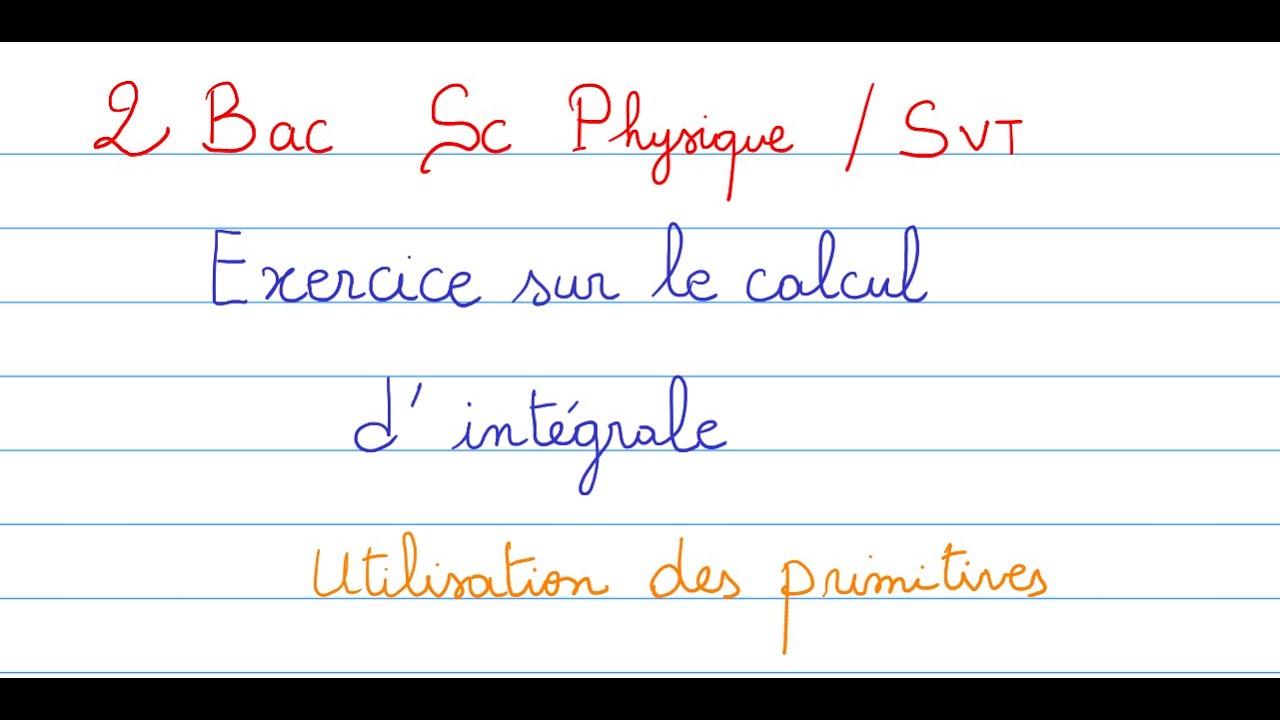 2 Bac Sc Physique / SVT
Exercice sur le calcul
d' intégrale
Utilisation des primitives